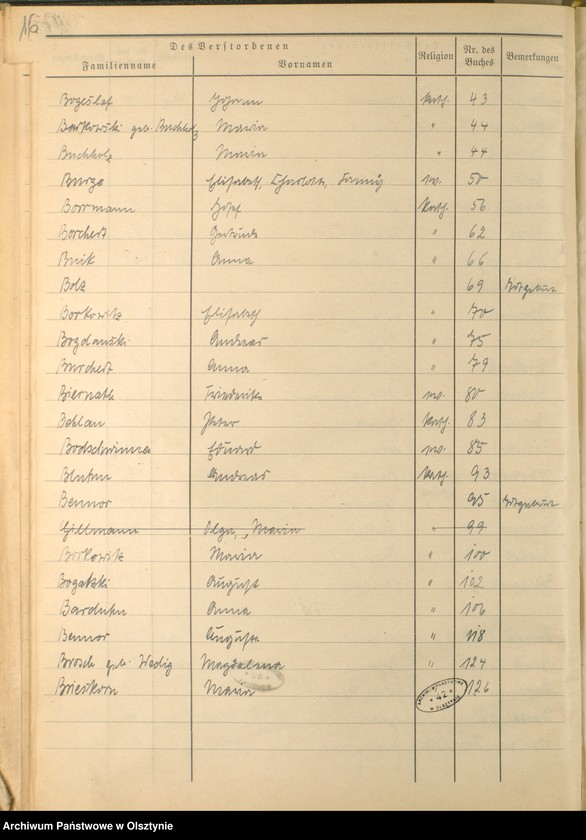 16
Des Verstorbenen
Familienname Vornamen Religion Nr. des Buches Bemerkungen
Bogeslaf Johann kath. 43
Barkowski geb. Buchholz Maria " 44
Buchholz Maria " 44
Burgo Elisabeth, Charlotte, Fanny ev. 50
Borrmann Josef kath. 56
Borchert Gertrude " 62
Bnik Anna " 66
Bolz 69 Totgeburt
Borkowitz Elisabeth " 70
Bogdanski Andreas " 75
Burchert Anna " 79
Biernath Friederike ev. 80
Behlau Peter kath. 83
Eduard ev. 85
Andreas kath. 93
Bennor 95 Totgeburt
Gillmann Olga, Maria " 99
Birkowitz Maria " 100
Bogatzki August " 102
Barduhn Anna " 106
Bennor Auguste " 118
Brosch geb. Wedig Magdalena " 124
Brieskorn Maria 126
ARCHIWUM PAŃSTWOWE
42
w OLSZTYNIE
Archiwum Państwowe w Olsztynie